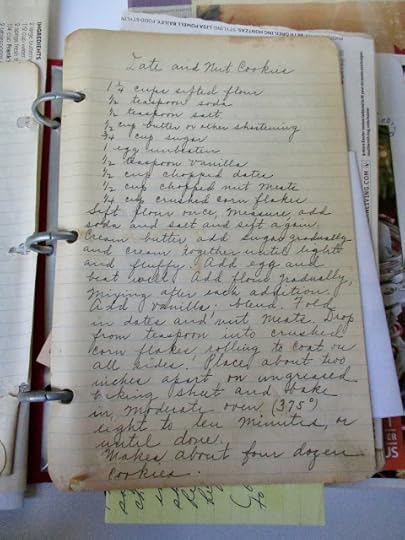 INGREDIENTS
Date and Nut Cookies
1 ¼ cups sifted flour
½ teaspoon soda
½ teaspoon salt
½ cup butter or other shortening
¾ cup sugar
1 egg unbeaten
½ teaspoon vanilla
½ cup chopped dates
½ cup chopped nut meats
cup crushed corn flakes
Sift flour once, measure, add
soda and salt and sift again.
Cream butter add sugar gradually
and cream together until light
and fluffy. Add egg and
beat well. Add flour gradually,
mixing after each addition.
Add vanilla, blend. Fold
in dates and nut meats. Drop
from teaspoon into crushed
corn flakes, rolling to coat on
all sides. Place about two
inches apart on ungreased
baking sheet and bake
in moderate oven (375°)
eight to ten minutes, or
until done.
Makes about four dozen
cookies.